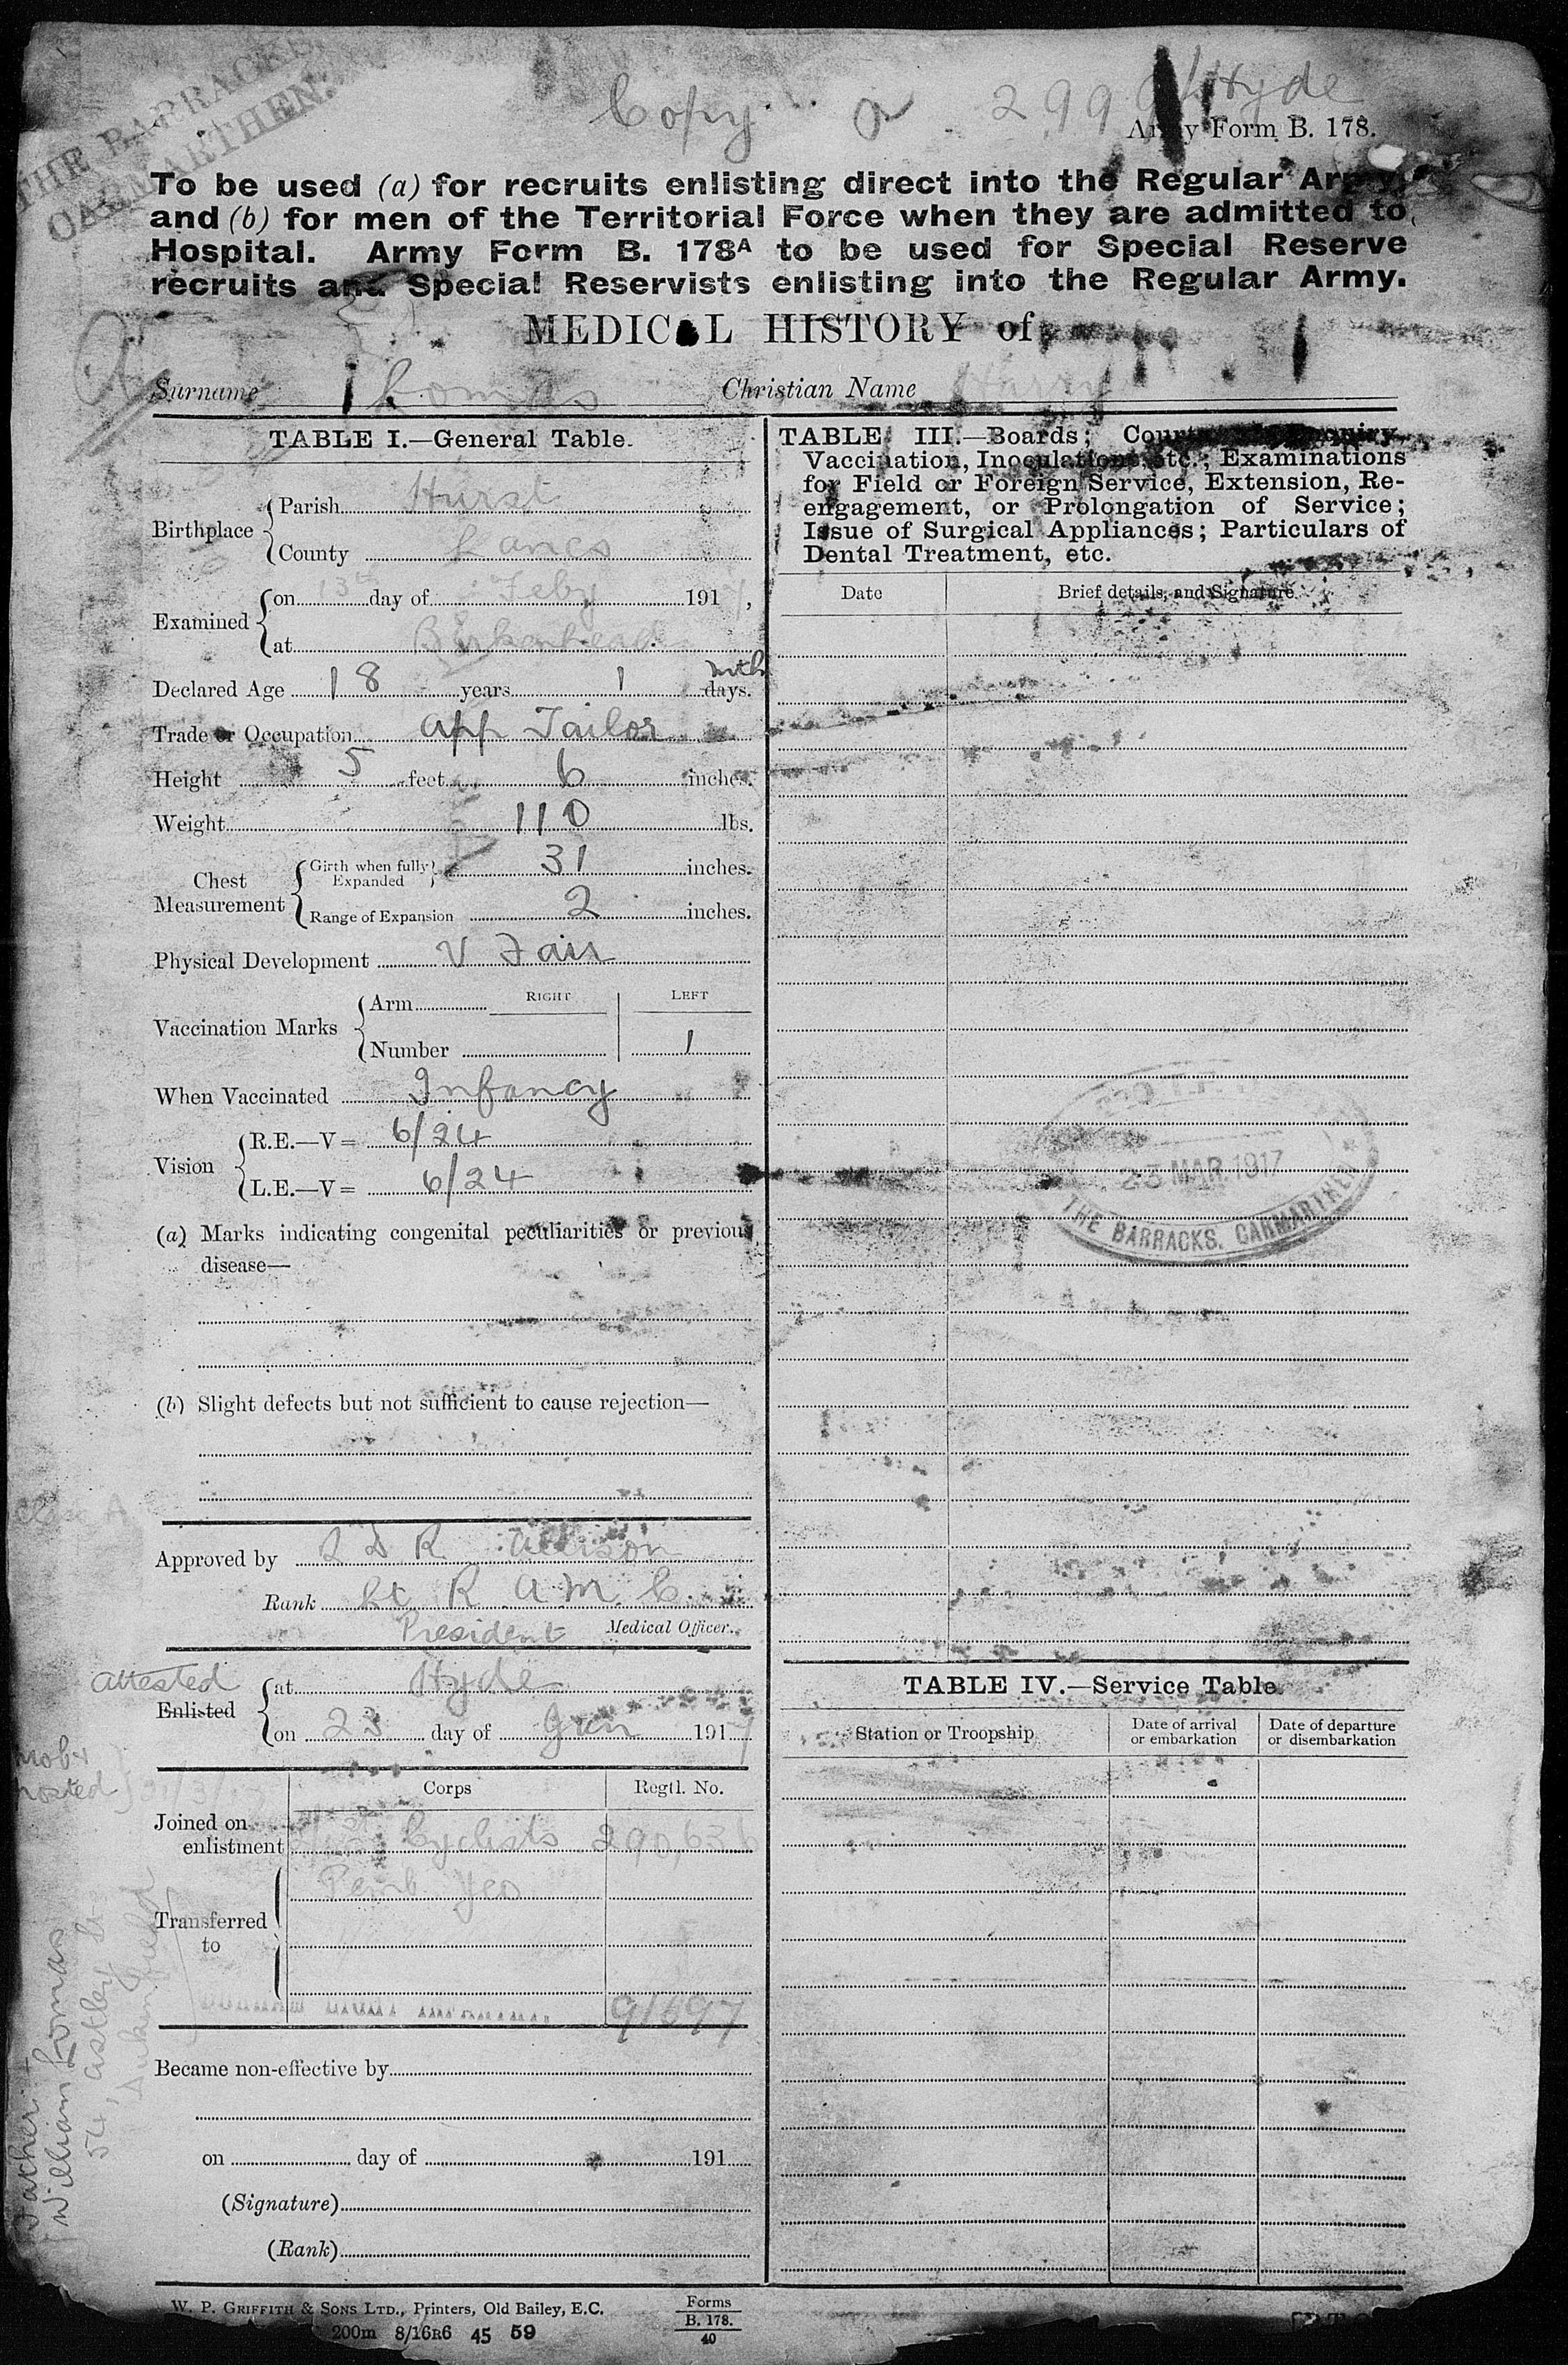 THE BARRACKS
CARMARTHEN.
Copy 2999/Hyde
Army Form B. 178.
To be used (a) for recruits enlisting direct into the Regular Army,
and (b) for men of the Territorial Force when they are admitted to
Hospital. Army Form B. 178A to be used for Special Reserve
recruits and Special Reservists enlisting into the Regular Army.
MEDICAL HISTORY of
Surname Lomas Christian Name Harry
TABLE I.—General Table.
Birthplace { Parish Hurst
County Lancs
Examined { on 13th day of Feby 1917,
at Birkenhead
Declared Age 18 years 1 mth days.
Trade or Occupation App Tailor
Height 5 feet 6 inches.
Weight 110 lbs.
Chest Measurement { Girth when fully Expanded } 31 inches.
Range of Expansion 2 inches.
Physical Development V Fair
Vaccination Marks { Arm RIGHT LEFT
Number 1
When Vaccinated Infancy
Vision { R.E.—V = 6/24
L.E.—V = 6/24
(a) Marks indicating congenital peculiarities or previous
disease—
(b) Slight defects but not sufficient to cause rejection—
Approved by R Allison
Rank Lt R A M C
President Medical Officer.
attested
Enlisted { at Hyde
on 23 day of Jan 1917
mob &
posted } 21/3/17
Corps Regtl. No.
Joined on
enlistment Cyclists 290,636
Pemb. Yeo
Transferred
to
91697
Became non-effective by
on day of 191
(Signature)
(Rank)
Father
William Lomas
54, Astley St
Dukinfield
TABLE III.—Boards; Courts of Inquiry,
Vaccination, Inoculations, etc.; Examinations
for Field or Foreign Service, Extension, Re-
engagement, or Prolongation of Service;
Issue of Surgical Appliances; Particulars of
Dental Treatment, etc.
Date Brief details, and Signature.
23 MAR. 1917
THE BARRACKS, CARMARTHEN
TABLE IV.—Service Table.
Station or Troopship Date of arrival or embarkation Date of departure or disembarkation
W. P. GRIFFITH & SONS LTD., Printers, Old Bailey, E.C.
200m 8/16R6 45 59
Forms
B. 178.
40